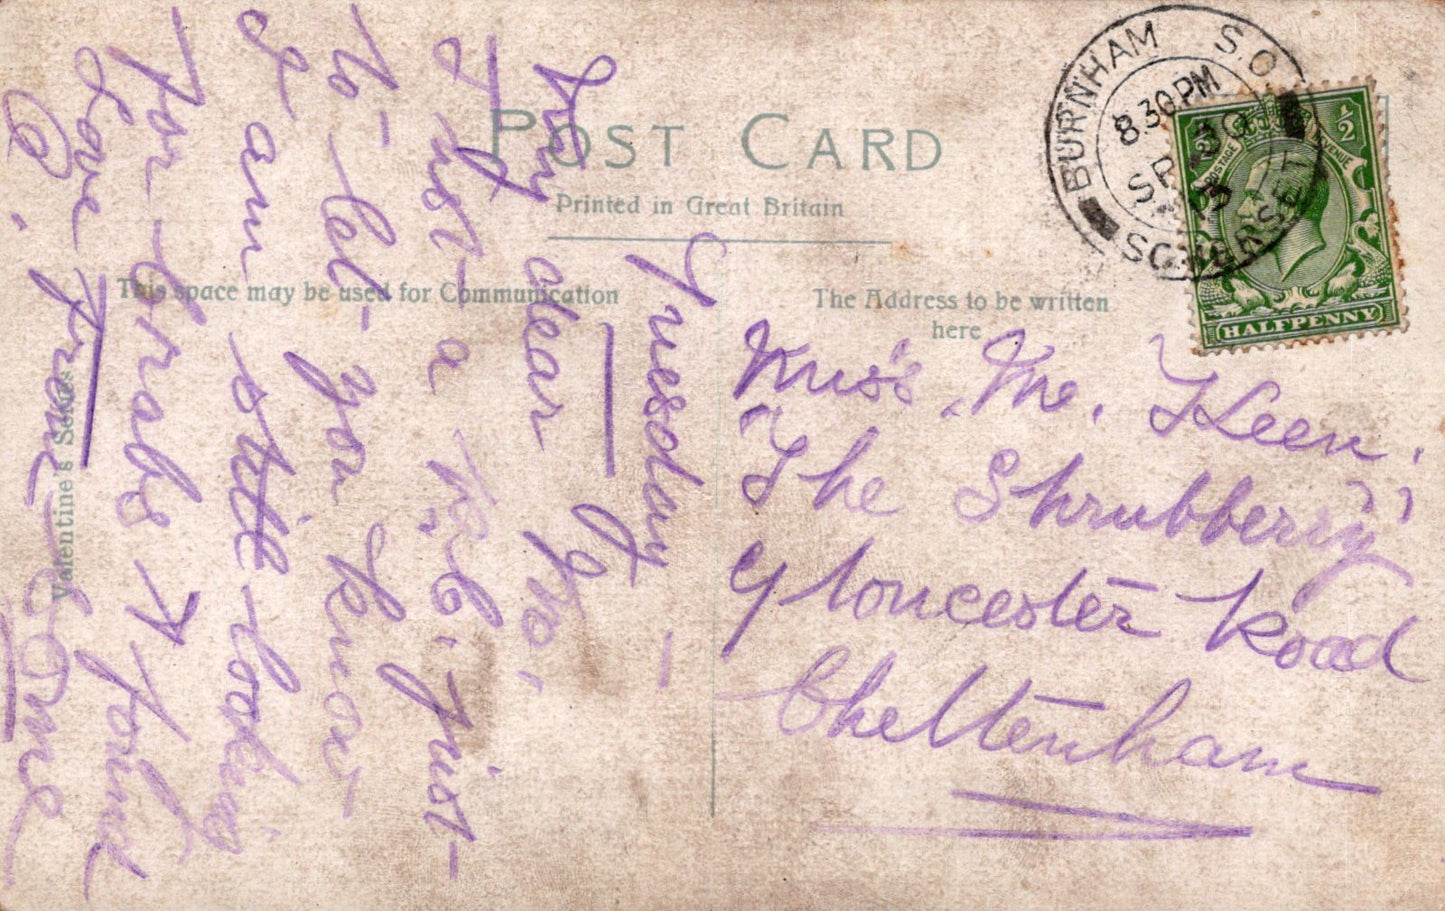 POST CARD
Printed in Great Britain
This space may be used for Communication
The Address to be written
here
Valentine's Series
BURNHAM S.O.
SOMERSET
8 30 PM
SP 30
13
POSTAGE REVENUE
1/2
HALFPENNY
Tuesday
My dear
Just a P.C. just
to let you know
I am still looking
for Crabs → found
one
Love from
Miss. Me. Skeen.
"The Shrubberry"
Gloucester Road
Cheltenham